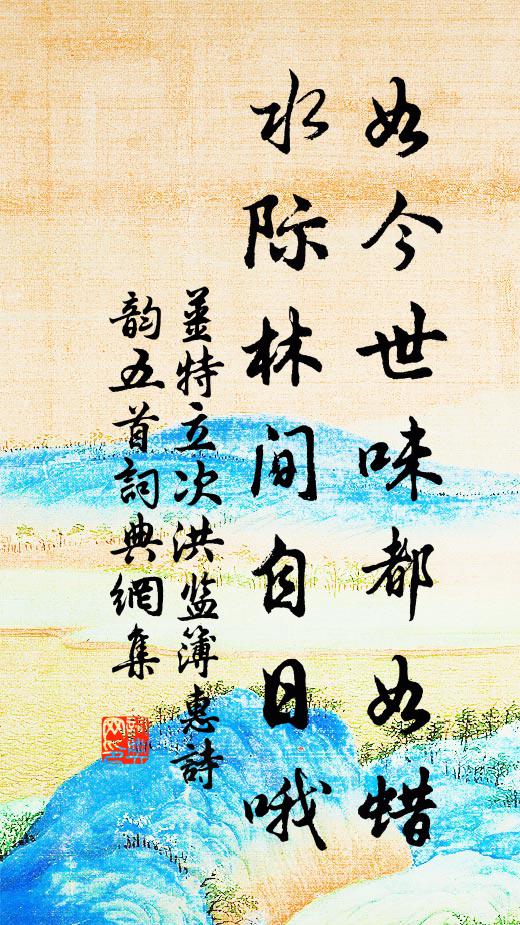 如今世味都如蜡
水际林间自日哦
姜特立次洪监簿惠詩
韵五首詞典網集